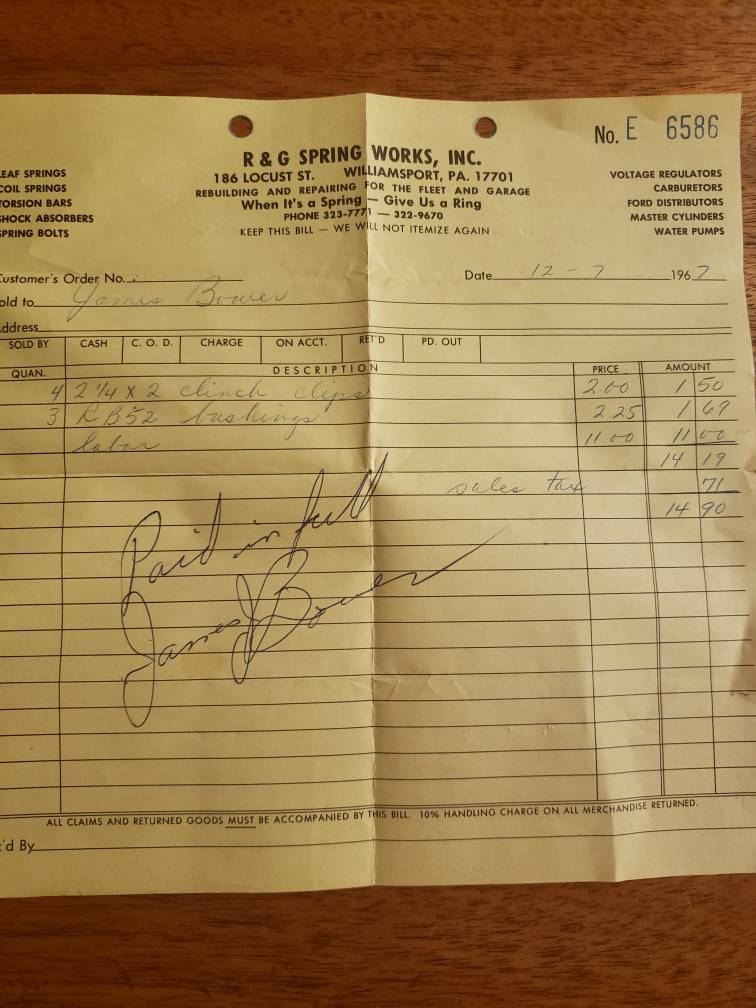 No. E 6586
R & G SPRING WORKS, INC.
186 LOCUST ST. WILLIAMSPORT, PA. 17701
REBUILDING AND REPAIRING FOR THE FLEET AND GARAGE
When It's a Spring — Give Us a Ring
PHONE 323-7771 — 322-9670
KEEP THIS BILL — WE WILL NOT ITEMIZE AGAIN
LEAF SPRINGS
COIL SPRINGS
TORSION BARS
SHOCK ABSORBERS
SPRING BOLTS
VOLTAGE REGULATORS
CARBURETORS
FORD DISTRIBUTORS
MASTER CYLINDERS
WATER PUMPS
Customer's Order No. Date 12 - 7 1967
old to James Bower
Address
SOLD BY CASH C. O. D. CHARGE ON ACCT. RET'D PD. OUT
QUAN. DESCRIPTION PRICE AMOUNT
4 2 1/4 x 2 clinch clips 2.00 1 50
3 RB52 bushings 2.25 1 69
labor 11.00 11 00
14 19
sales tax 71
14 90
Paid in full
James J Bower
ALL CLAIMS AND RETURNED GOODS MUST BE ACCOMPANIED BY THIS BILL. 10% HANDLING CHARGE ON ALL MERCHANDISE RETURNED.
'd By